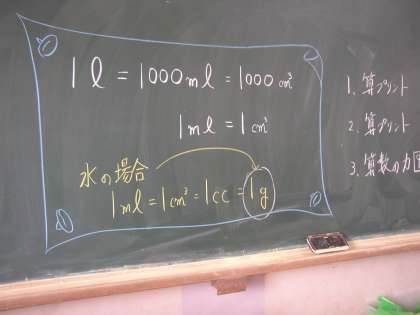 1ℓ = 1000mℓ = 1000cm³
1mℓ = 1cm³
水の場合
1mℓ = 1cm³ = 1cc = 1g
1. 算プリント
2. 算プリント
3. 算数の力